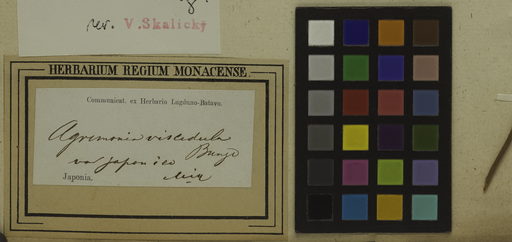 rev. V. Skalický
HERBARIUM REGIUM MONACENSE.
Communicat. ex Herbario Lugduno-Batavo.
Agrimonia viscidula
Bunge
var japonica
Miq
Japonia.